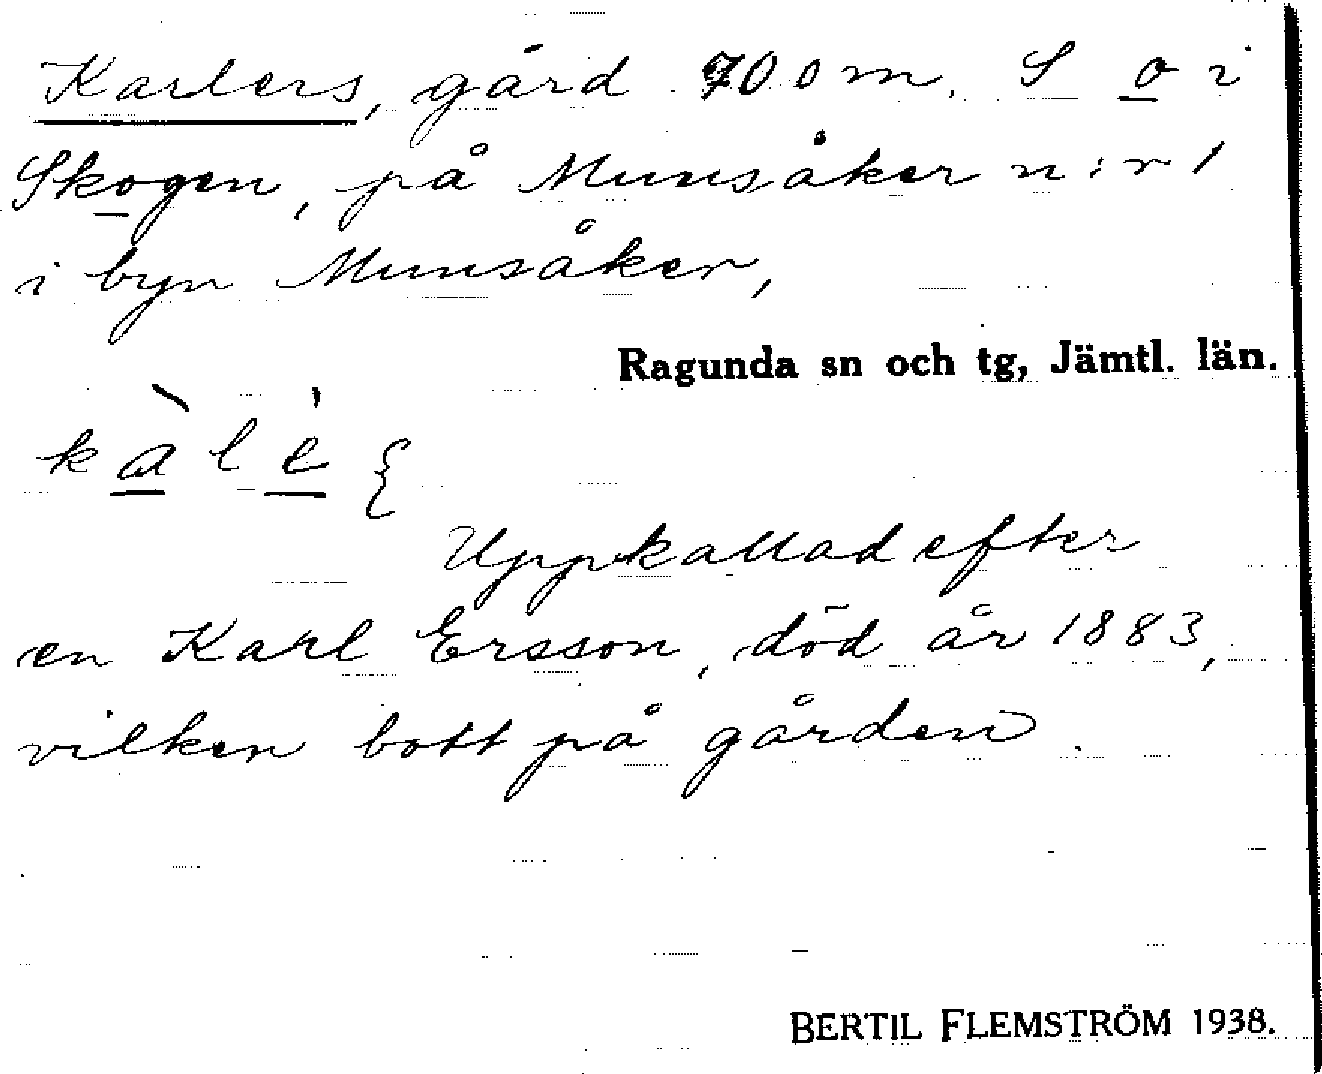 Karlers, gård 700 m. S o i
Skogen, på Munsåker n:r 1
i byn Munsåker,
Ragunda sn och tg, Jämtl. län.
kàlè {
Uppkallad efter
en Karl Ersson, död år 1883,
vilken bott på gården.
BERTIL FLEMSTRÖM 1938.